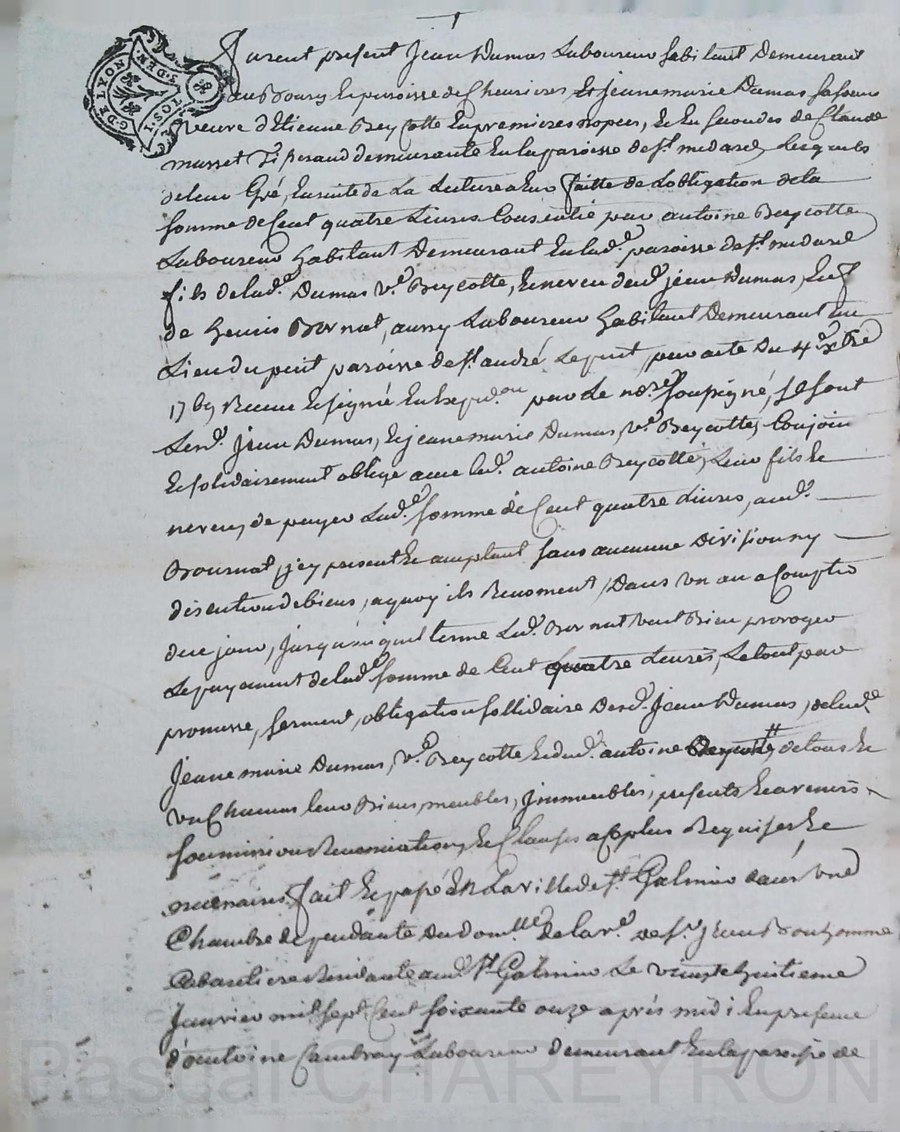 G. DE LYON
3. DEN
TOS. T
furent present Jean Dumas Laboureur habitant Demeurant
au Bourg Et paroisse de Chenieres, Et jeanne marie Dumas sa soeur
veuve d'Etienne Beycotte En premieres nopces, Et En secondes de Claude
musset demeurante En la paroisse de st. medard, Lesquels
de leur Gré, Ensuite de La Lecture a Eux faitte de Lobligation de la
somme de Cent quatre Livres Consentie par antoine Beycotte
Laboureur habitant Demeurant En lad.e paroisse de st. medard
fils de lad.e Dumas v.e Beycotte, Et neveu dud. jean Dumas, En f
de Bornat, aussy Laboureur habitant Demeurant au
Lieu du paroisse de st. andré Le puit, par acte Du 4e xbre
1769 Receu Et signé En Expedon par Le nore soussigné, se sont
Lesd. Jean Dumas, Et jeanne marie Dumas, ve. Beycotte, Conjoin
Et solidairement obligé avec led. antoine Beycotte, Leur fils Et
neveu, de payer Lad.e somme de Cent quatre Livres, aud.
Bournat, j'cy present Et acceptant sans aucunne Division ny
discution de biens, a quoy ils Renoncent, Dans un an a Compter
de ce jour, jusqu'auquel terme Led. Bornat veut Bien proroger
Le payement de lad.e somme de Cent quatre Livres, Le tout par
promesse, serment, obligation sollidaire Desd. Jean Dumas, de lad.e
Jeanne marie Dumas, v.e Beycotte Et dud. antoine Beycotte, de tous Et
un Chacuns leur Biens, meubles, Jmmeubles, presents Et avenirs
soumissions Renonciations, Et Clauses a Ce plus Requises Et
necessaires, fait Et passé En La ville de st. Galmier dans une
Chambre dependante du domlle de la ve. de sr. Jean Bonhomme
Cabaretiere Residante aud. st Galmier Le vingt huitieme
Janvier mil sept Cent soixante onze après midi En presence
d'antoine Cambray Laboureur demeurant En la paroisse de
Pascal CHAREYRON